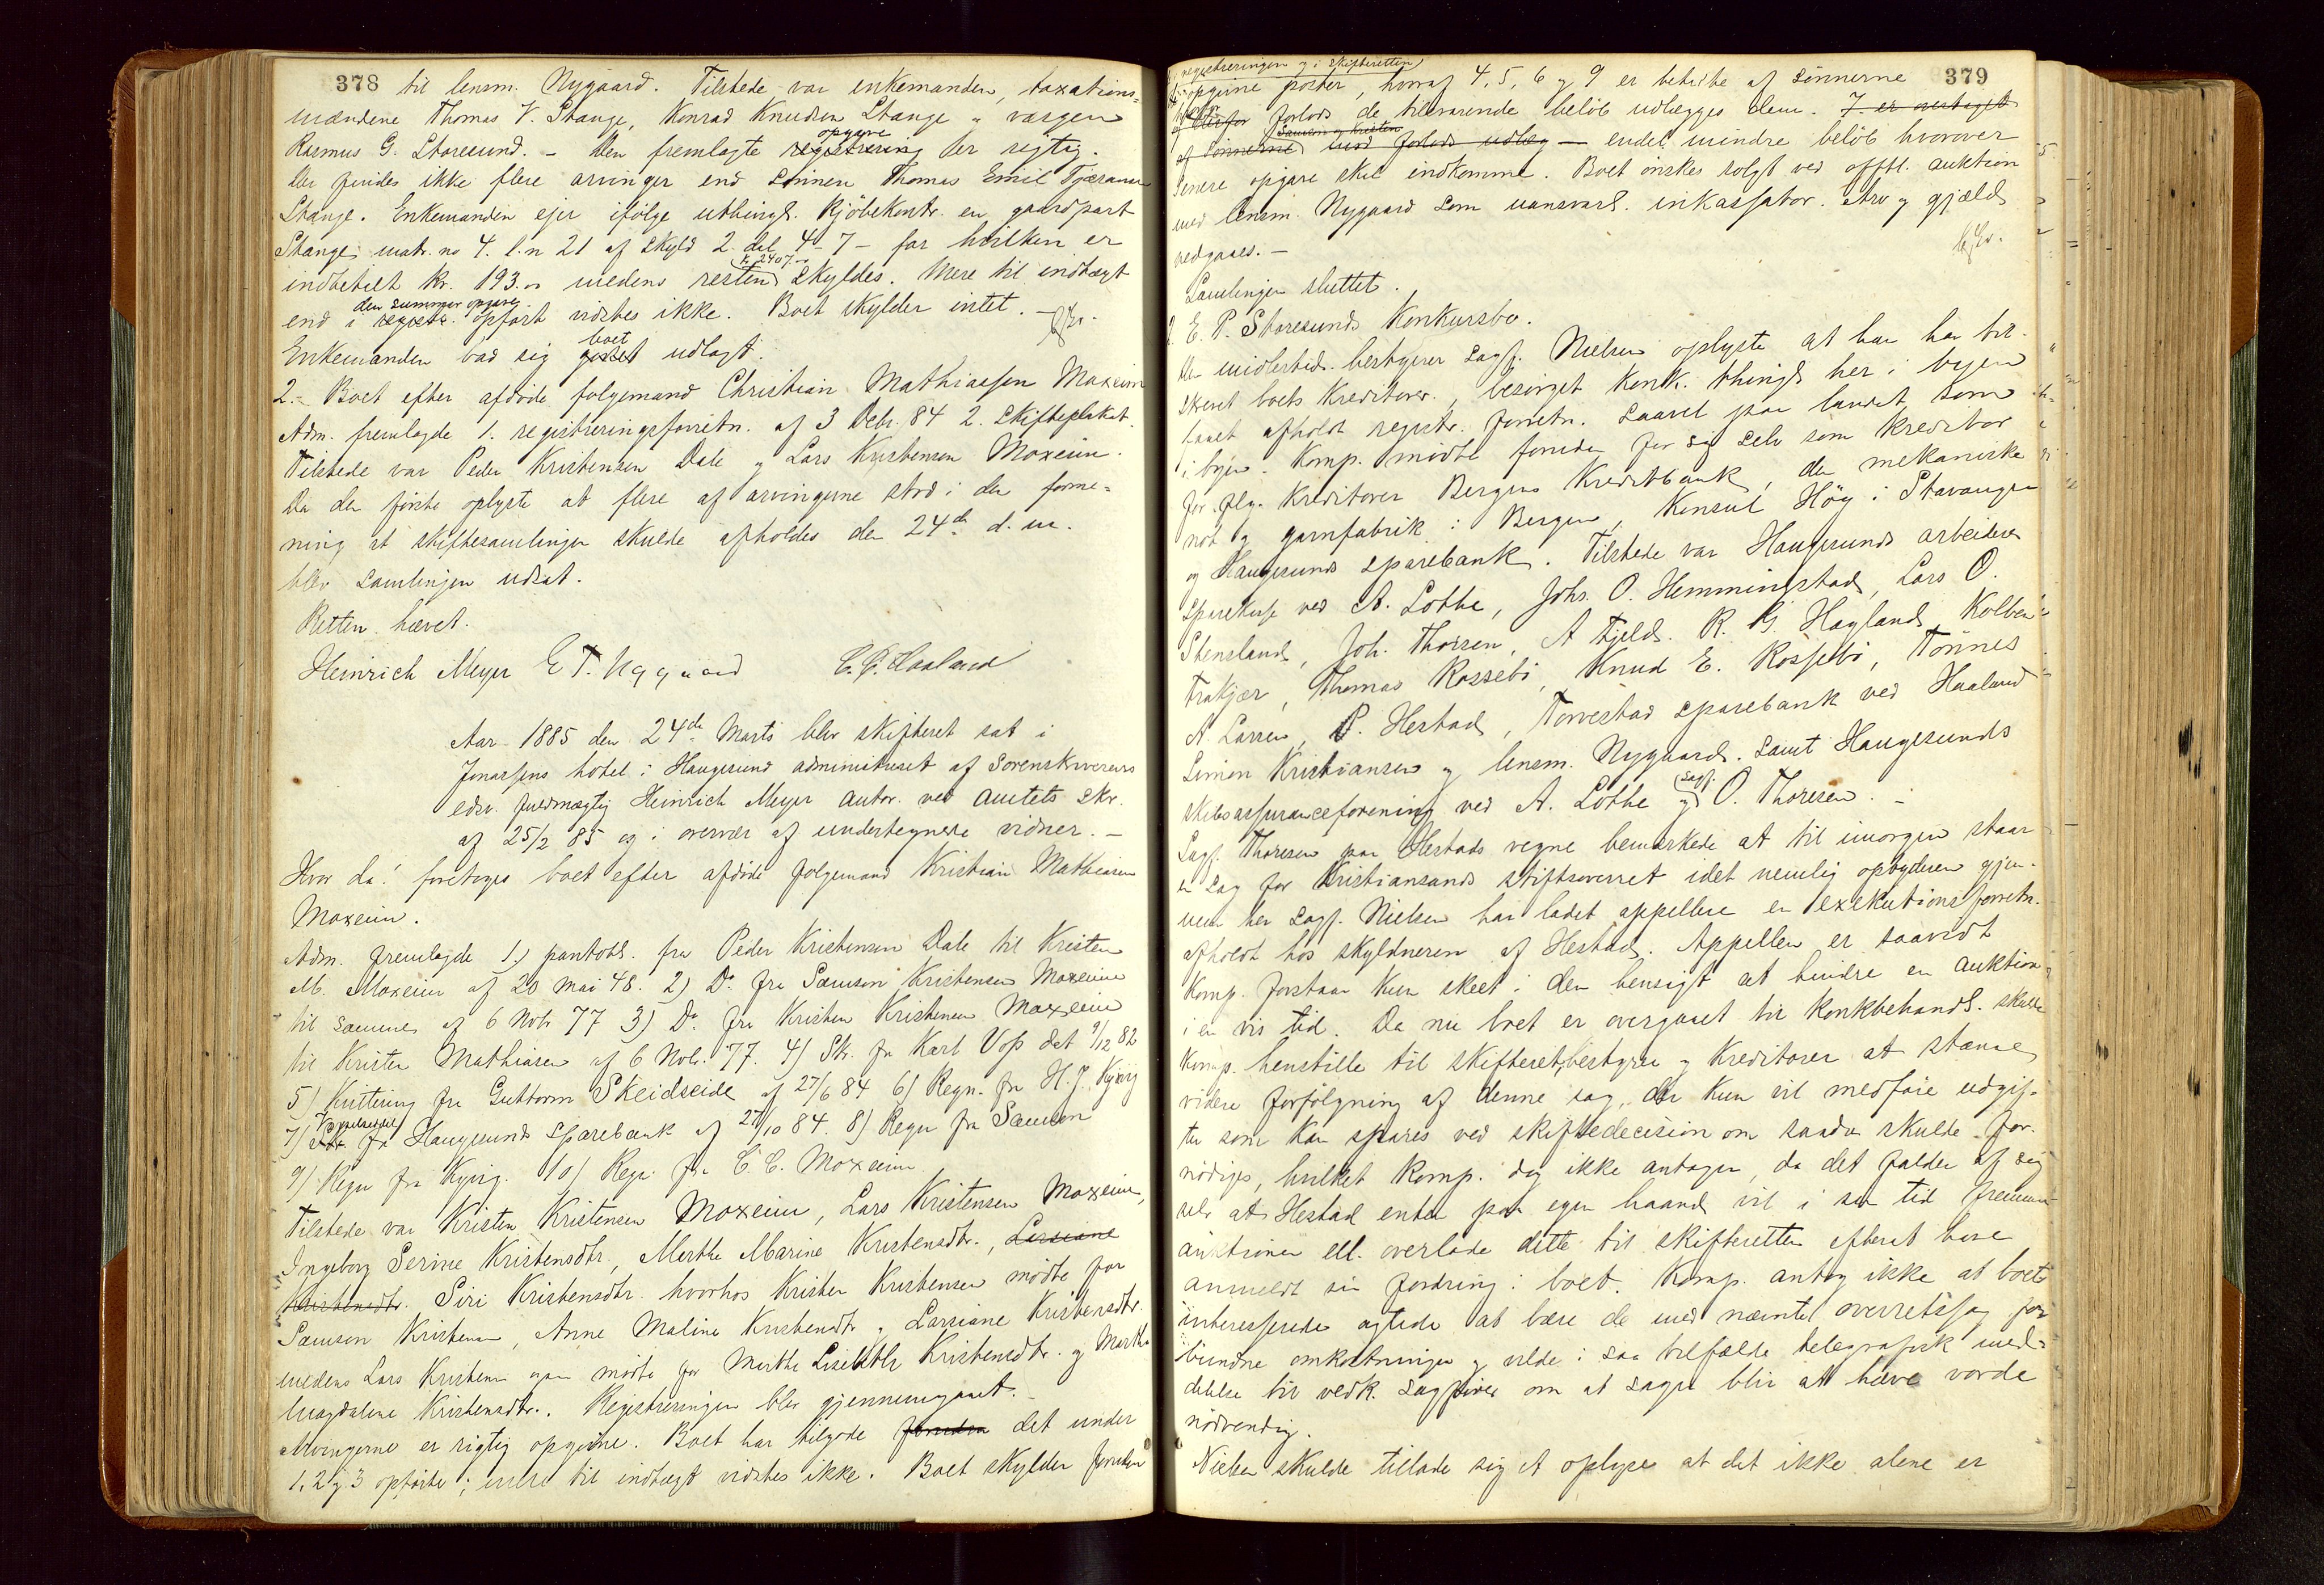 378 til lensm. Nygaard. Tilstede var enkemanden, taxations-
mændene Thomas V. Stange, Konrad Knudsen Stange og værgen
opgave
Rasmus G. Storesund. - Den fremlagte registrering er rigtig.
Der findes ikke flere arvinger end sönnen Thomas Emil Tjæransen
Stange. Enkemanden ejer ifölge uthingl. kjöbekontr. en gaardpart
Stange matr. no 4. l. n 21 af skyld 2 dal. 4 - 7 - for hvilken er
k. 2407.-
indbetalt kr. 193.00 medens resten skyldes. Mere til indtægt
den summar. opgave
end i registr. opfört vidstes ikke. Boet skylder intet. -
boet
Enkemanden bad sig godset udlagt.
2.- Boet efter afdöde fölgemand Christian Mathiassen Moxeim
Adm. fremlagde 1. registreringsforretn. af 3 Debr. 84 2. Skifteplakat.
Tilstede var Peder Kristensen Dale og Lars Kristensen Moxeim.
Da den förste oplyste at flere af arvingerne stod i den forme-
ning at skiftesamlingen skulde afholdes den 24de d. m.
blev samlingen udsat.
Retten hævet.
Heinrich Meyer E T. Nygaard C. C. Haaland
Aar 1885 den 24de Marts blev skifteret sat i
Jonassens hotel i Haugesund administreret af Sorenskriverens
edsv. fuldmægtig Heinrich Meyer autor. ved amtets skr.
af 25/2 85 og i overvær af undertegnede vidner. -
Hvor da! foretoges boet efter afdöde fölgemand Kristian Mathiasen
Moxeim.
Adm. fremlagde 1.) pantobl. fra Peder Kristensen Dale til Kristen
M. Moxeim af 20 mai 48. 2) Do. fra Samson Kristensen Moxeim
til samme af 6 Nobr 77 3) Do fra Kristen Kristensen Moxeim
til Kristen Mathiasen af 6 Nobr. 77. 4) Skr. fra Karl Voss dat 9/12 82
5) Kvittering fra Guttorm Skeidseide af 27/6 84 6) Regn. fra H. J. Kyvig
7) fra Haugesunds sparebank af 27/10 84. 8) Regn fra Samson
9) Regn fra Kyvig. 10) Regn. fra C. C. Moxeim
Tilstede var Kristen Kristensen Moxeim, Lars Kristensen Moxeim,
Ingeborg Serine Kristensdtr, Merthe Marine Kristensdtr., Larsiane
Kristensdtr. Siri Kristensdtr. hvorhos Kristen Kristensen mödte for
Samson Kristensen, Anne Maline Kristensdtr og Larsiane Kristensdtr.
medens Lars Kristensen ogsaa mödte for Merthe Lisebeth Kristensdtr. og Marthe
Magdalene Kristensdtr. Registreringen blev gjennemgaaet. -
Arvingerne er rigtig opgivne. Boet har tilgode foruden det under
1, 2 og 3 opförte; mere til indtægt vidstes ikke. Boet skylder foruden
379
registreringen og i skifteretten
opgivne poster, hvoraf 4, 5, 6 og 9 er betalte af sönnerne
og derfor forlods de tilsvarende belöb udlægges dem. 7 er overtaget
Samson og Kristen
af sönnerne mod forlods udlæg - endel mindre belöb hvorover
senere opgave skal indkomme. Boet önskes solgt ved offtl. auktion
med lensm. Nygaard som uansvarl. inkassator. Arv og gjæld
vedgaaes. -
Samlingen sluttet.
2. E. P. Storesunds Konkursbo.
Den midlertid. bestyrer sagf. Nielsen oplyste at han har til-
skrevet boets kreditorer, besörget konk. thingl. her i byen
samt afholdt registr. forretn. saavel paa landet som
i byen. Komp. mödte foruden for sig selv som kreditor
for flg. kreditorer Bergens Kreditbank, den mekaniske
not og garnfabrik i Bergen, Konsul Höy i Stavanger
og Haugesunds sparebank. Tilstede var Haugesunds arbeideres
sparekasse ved A. Lothe, Johs. O. Hemmingstad, Lars O.
Stensland, Joh. Thorsen, A Fjeld. R. G. Hagland, Kolben
Trækjær, Thomas Rossebö, Knud E. Rossebö, Tönnes
A. Larsen, P. Hestad, Torvestad sparebank ved Haaland
Simon Kristiansen og lensm. Nygaard. samt Haugesunds
sagf.
skibsassuranceforening ved A. Lothe og O. Thoresen. -
Sagf. Thoresen paa Hestads vegne bemærkede at til imorgen staar
en sag for Kristiansands stiftsoverret idet nemlig opbyderen gjen-
nem her sagf. Nielsen har ladet appellere en exekutionsforretn.
afholdt hos skyldneren af Hestad. Appellen er saavidt
komp. forstaar kun skeet i den hensigt at hindre en auktion
i en vis tid. Da nu boet er overgaaet til konkbehandl. skulde
komp. henstille til skifteret, bestyrer og kreditorer at stanse
videre forfölgning af denne sag, der kun vil medföre udgif-
ter som kan spares ved skiftedecision om saadan skulde for-
nödiges, hvilket komp. dog ikke antager, da det falder af sig
selv at Hestad enten paa egen haand vil i sin tid fremme
auktionen ell. overlade dette til skifteretten efterat have
anmeldt sin fordring i boet. Komp. antog ikke at boets
interesserede agtede at bære de med nævnte overretssag for-
bundne omkostninger og vilde i saa tilfælde telegrafisk med-
delelse til vedk. sagförer om at sagen blir at hæve vorde
nödvendig.
Nielsen skulde tillade sig at oplyse at det ikke alene er